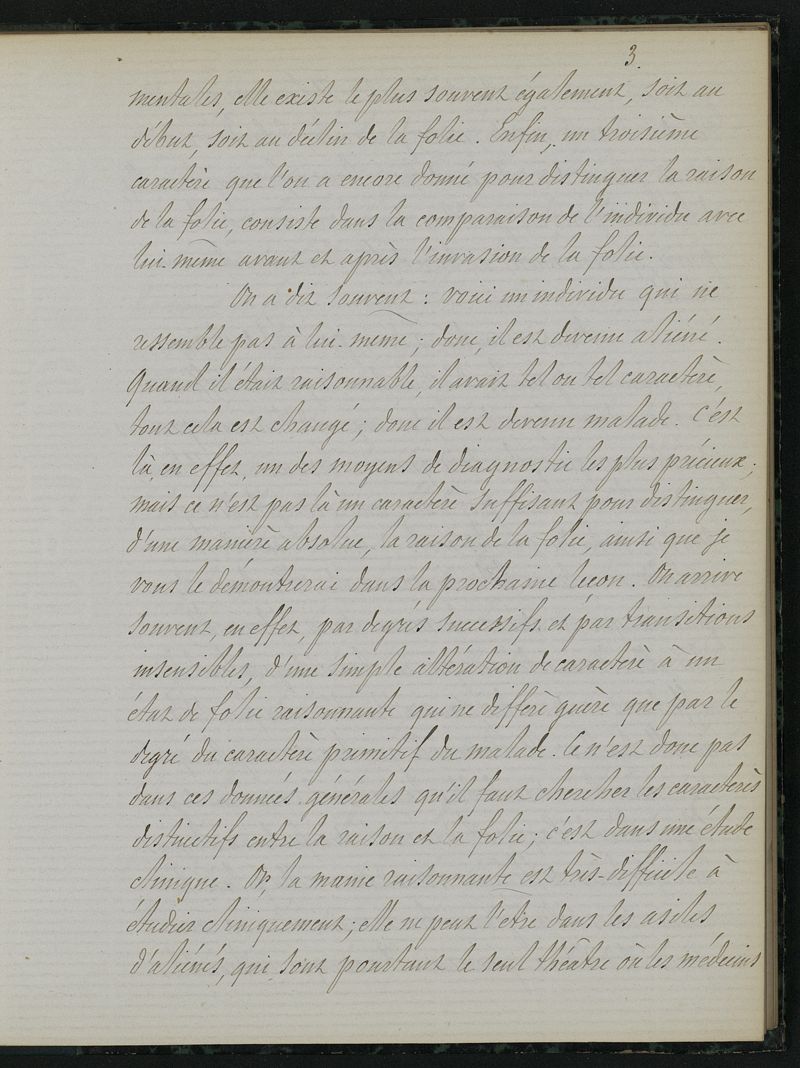 3.
mentales, elle existe le plus souvent également, soit au
début, soit au déclin de la folie. Enfin, un troisième
caractère que l'on a encore donné pour distinguer la raison
de la folie, consiste dans la comparaison de l'individu avec
lui-même avant et après l'invasion de la folie.
On a dit souvent : voici un individu qui ne
ressemble pas à lui-même ; donc, il est devenu aliéné.
Quand il était raisonnable, il avait tel ou tel caractère,
tout cela est changé ; donc il est devenu malade. C'est
là, en effet, un des moyens de diagnostic les plus précieux ;
mais ce n'est pas là un caractère suffisant pour distinguer,
d'une manière absolue, la raison de la folie, ainsi que je
vous le démontrerai dans la prochaine leçon. On arrive
souvent, en effet, par degrés successifs et par transitions
insensibles, d'une simple altération de caractère à un
état de folie raisonnante qui ne diffère guère que par le
degré du caractère primitif du malade. Ce n'est donc pas
dans ces données générales qu'il faut chercher les caractères
distinctifs entre la raison et la folie ; c'est dans une étude
clinique. Or, la manie raisonnante est très-difficile à
étudier cliniquement ; elle ne peut l'être dans les asiles
d'aliénés, qui sont pourtant le seul théâtre où les médecins